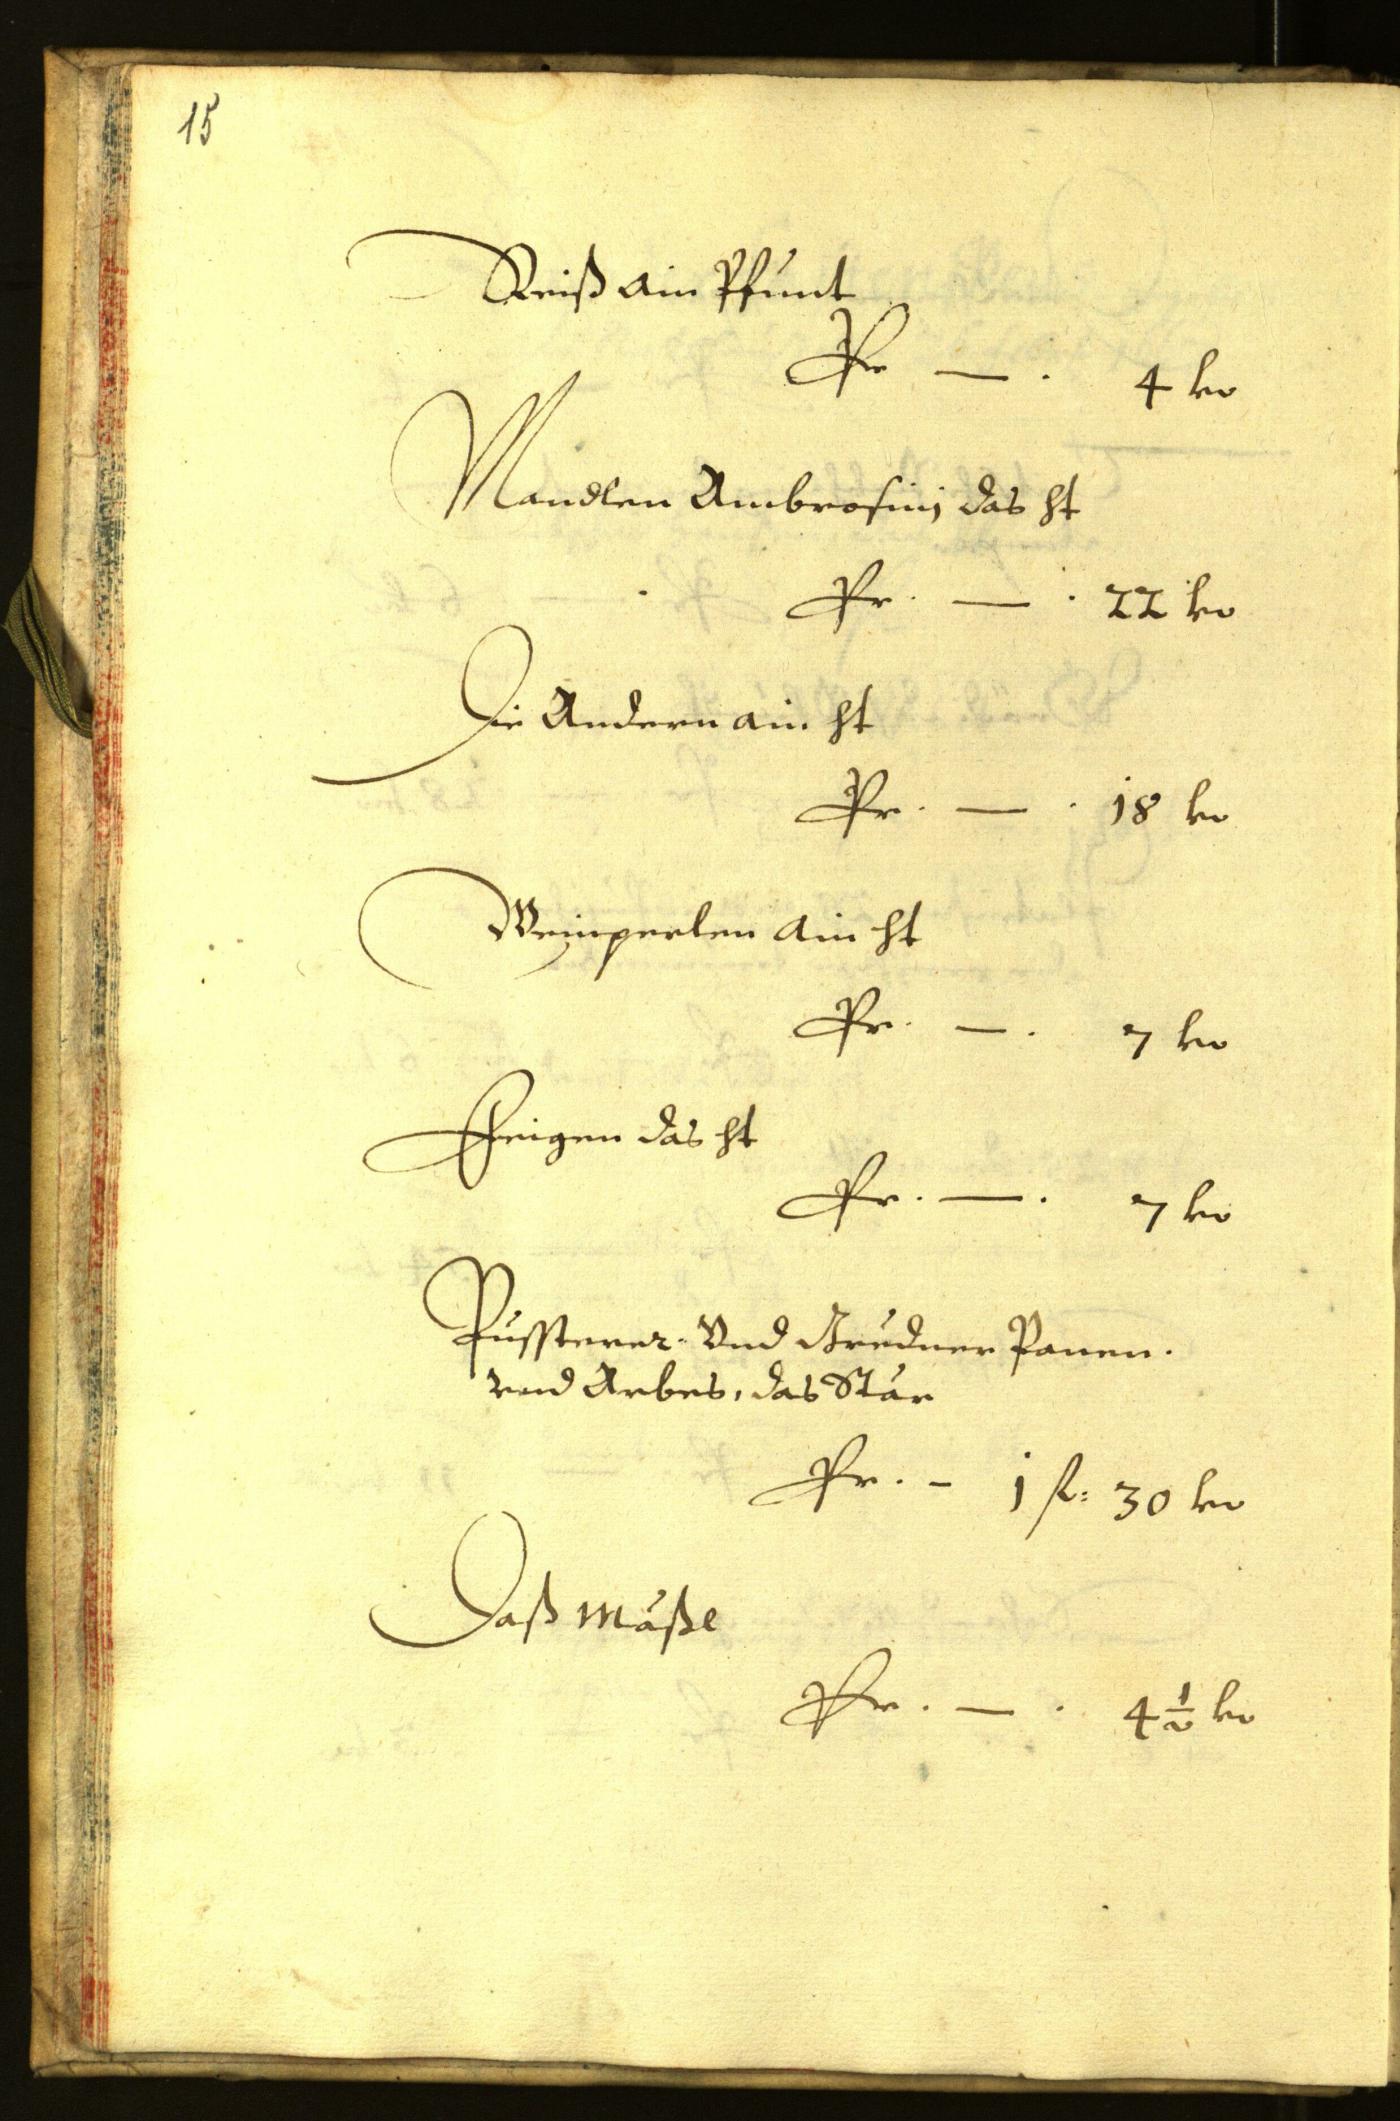 15
Reiß ain Pfundt
Per — . 4 kr
Mandlen Ambrosinj das ℔
Per . — . 22 kr
Die Andern ain ℔
Per . — . 18 kr
Weinperlen ain ℔
Per . — . 7 kr
Feigen das ℔
Per . — . 7 kr
Pussterer. Vnd Gredner Panen.
vnd Arbes, das Stär
Per . – 1 fl: 30 kr
Daß Mäßl
Per . — . 4 ½ kr